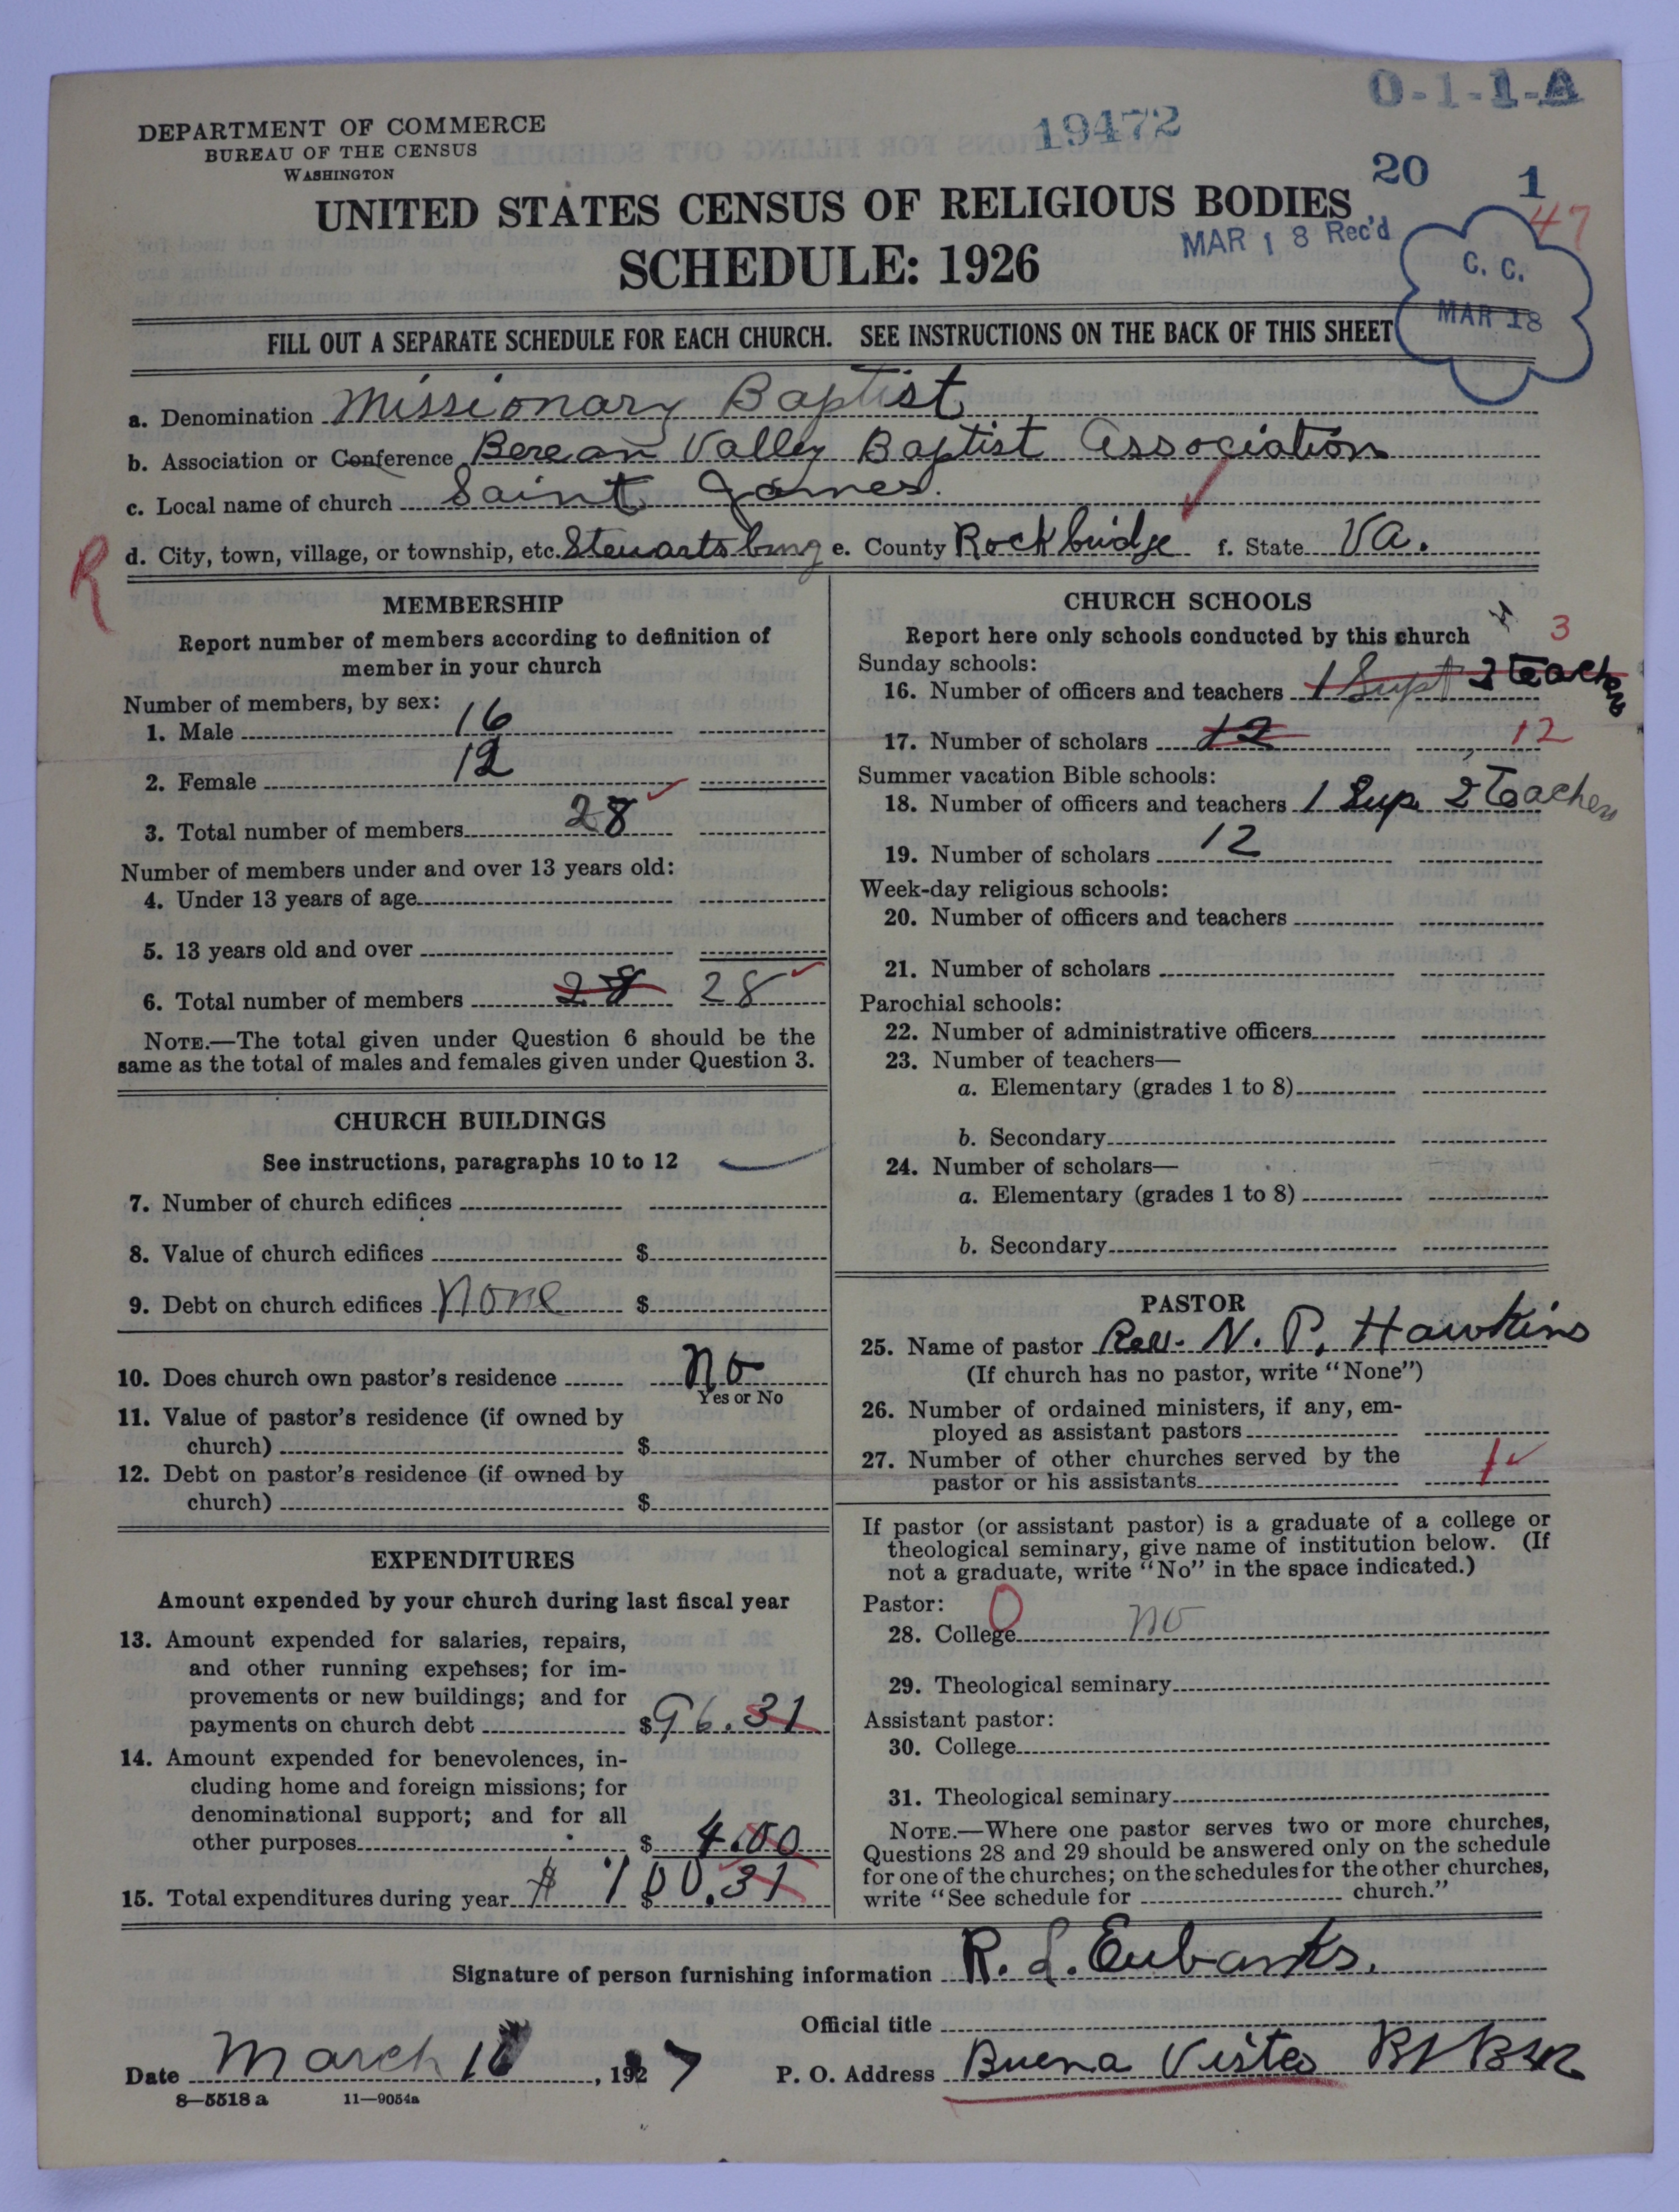 0-1-1-A
DEPARTMENT OF COMMERCE
BUREAU OF THE CENSUS
WASHINGTON
19472
20 1
47
UNITED STATES CENSUS OF RELIGIOUS BODIES
MAR 18 Rec'd
SCHEDULE: 1926
C. C.
MAR 18
FILL OUT A SEPARATE SCHEDULE FOR EACH CHURCH. SEE INSTRUCTIONS ON THE BACK OF THIS SHEET
a. Denomination Missionary Baptist
b. Association or Conference Berean Valley Baptist Association
c. Local name of church Saint James.
R
d. City, town, village, or township, etc. Steuartsburg e. County Rockbridge f. State Va.
MEMBERSHIP
Report number of members according to definition of
member in your church
Number of members, by sex:
1. Male 16
2. Female 12
3. Total number of members 28
Number of members under and over 13 years old:
4. Under 13 years of age
5. 13 years old and over
6. Total number of members 28 28
NOTE.—The total given under Question 6 should be the
same as the total of males and females given under Question 3.
CHURCH BUILDINGS
See instructions, paragraphs 10 to 12
7. Number of church edifices
8. Value of church edifices $
9. Debt on church edifices None $
10. Does church own pastor's residence no
Yes or No
11. Value of pastor's residence (if owned by
church) $
12. Debt on pastor's residence (if owned by
church) $
EXPENDITURES
Amount expended by your church during last fiscal year
13. Amount expended for salaries, repairs,
and other running expenses; for im-
provements or new buildings; and for
payments on church debt $96.31
14. Amount expended for benevolences, in-
cluding home and foreign missions; for
denominational support; and for all
other purposes $ 4.00
15. Total expenditures during year $ $ 100.31
CHURCH SCHOOLS
Report here only schools conducted by this church
3
Sunday schools:
16. Number of officers and teachers 1 Supt 2 Teachers
17. Number of scholars 12 12
Summer vacation Bible schools:
18. Number of officers and teachers 1 Sup. 2 Teachers
19. Number of scholars 12
Week-day religious schools:
20. Number of officers and teachers
21. Number of scholars
Parochial schools:
22. Number of administrative officers
23. Number of teachers—
a. Elementary (grades 1 to 8)
b. Secondary
24. Number of scholars—
a. Elementary (grades 1 to 8)
b. Secondary
PASTOR
25. Name of pastor Rev. N. P. Hawkins
(If church has no pastor, write "None")
26. Number of ordained ministers, if any, em-
ployed as assistant pastors
27. Number of other churches served by the
pastor or his assistants 1
If pastor (or assistant pastor) is a graduate of a college or
theological seminary, give name of institution below. (If
not a graduate, write "No" in the space indicated.)
Pastor: 0
28. College no
29. Theological seminary
Assistant pastor:
30. College
31. Theological seminary
NOTE.—Where one pastor serves two or more churches,
Questions 28 and 29 should be answered only on the schedule
for one of the churches; on the schedules for the other churches,
write "See schedule for church."
Signature of person furnishing information R. L. Eubanks.
Official title
Date March 1 , 1927 P. O. Address Buena Vista
8—5518 a 11—9054a